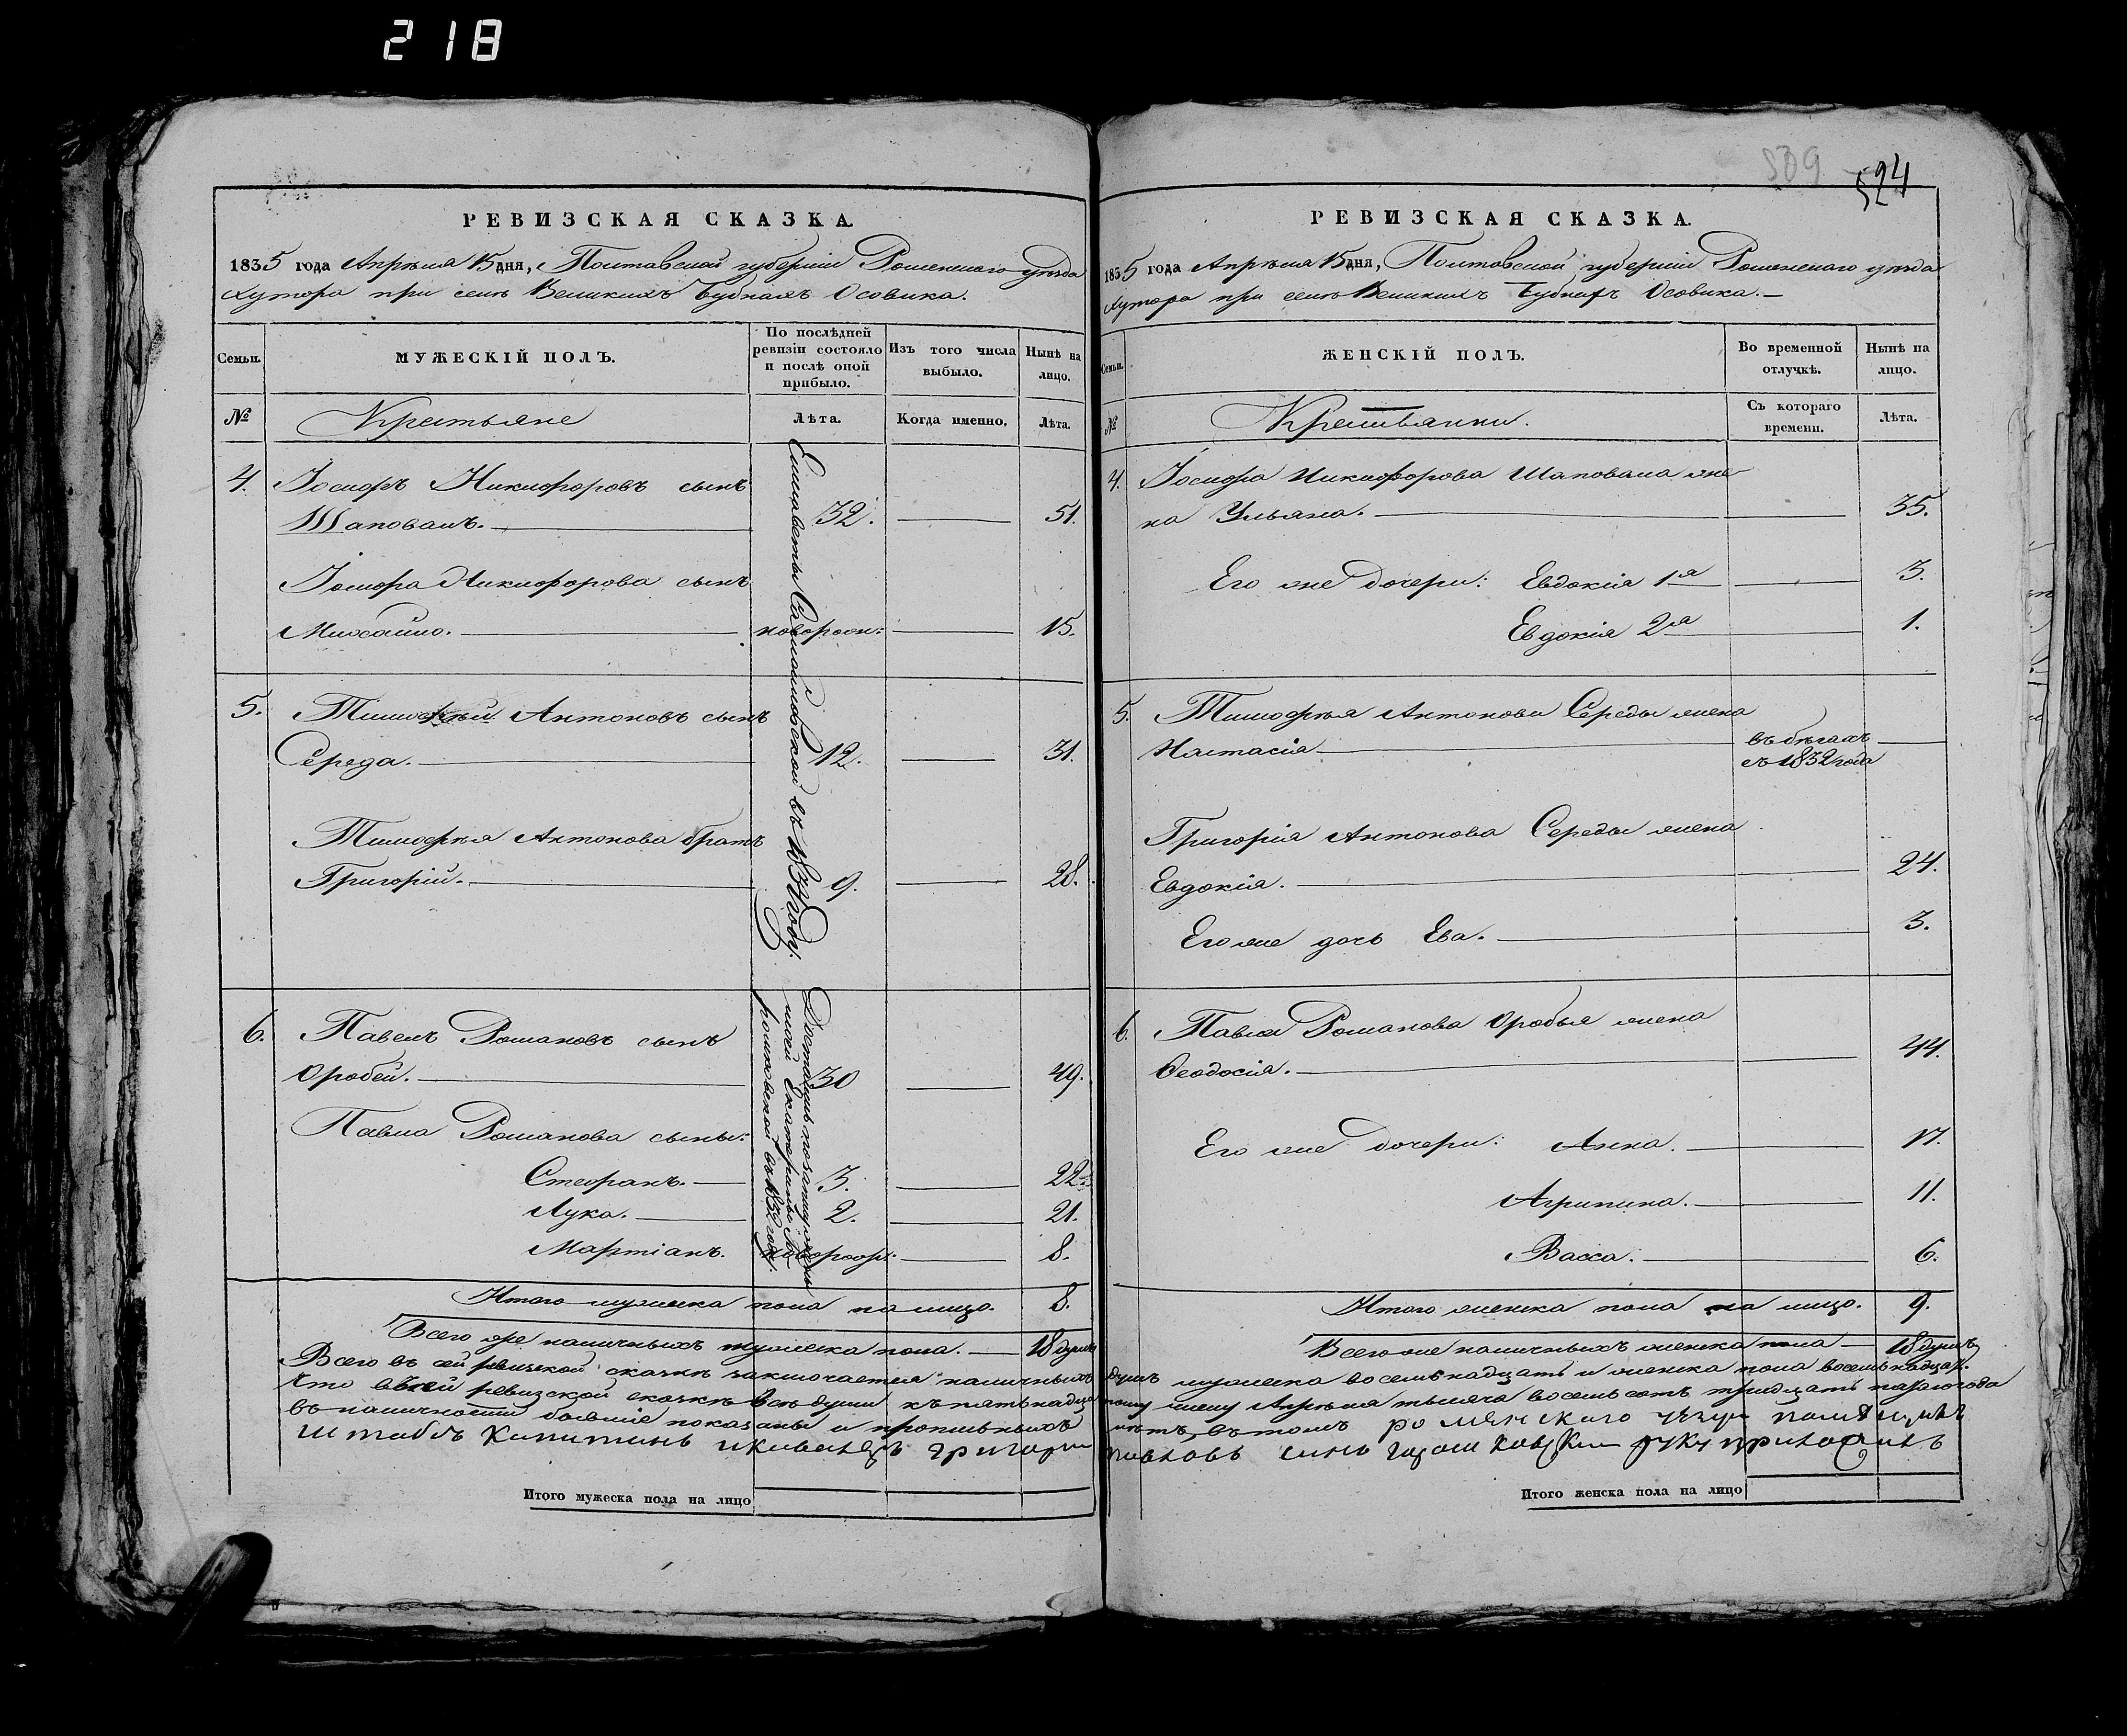 218
509
524
РЕВИЗСКАЯ СКАЗКА.
1835 года Апрѣля 15 дня, Полтавской губерніи Роменскаго уѣзда
Хутора при селѣ Великихъ Бубнахъ Осовика.
Семьи.
МУЖЕСКІЙ ПОЛЪ.
По послѣдней ревизіи состояло и послѣ оной прибыло.
Изъ того числа выбыло.
Нынѣ на лицо.
№
Крестьяне
Лѣта.
Когда именно.
Лѣта.
4. Іосифъ Никифоровъ сынъ
Шаповалъ. 32. 51.
Іосифа Никифорова сынъ
Михайло. новорож: 15.
5. Тимофѣй Антоновъ сынъ
Середа. 12. 31.
Тимофѣя Антонова братъ
Григорій. 9. 28.
6. Павелъ Романовъ сынъ
Оробей. 30 49.
Павла Романова сыны:
Стефанъ. 3. 22.
Лука. 2. 21.
Мартіанъ. новорож: 8.
Итого мужеска пола на лицо. 8.
Всего же наличныхъ мужеска пола. 18 душъ
Елисаветы въ 1832 году.
Екатерины
въ 1832 году.
РЕВИЗСКАЯ СКАЗКА.
1835 года Апрѣля 15 дня, Полтавской губерніи Роменскаго уѣзда
Хутора при селѣ Великихъ Бубнахъ Осовика.
Семьи.
ЖЕНСКІЙ ПОЛЪ.
Во временной отлучкѣ.
Нынѣ на лицо.
№
Крестьянки.
Съ котораго времени.
Лѣта.
4. Іосифа Никифорова Шаповала же-
на Ульяна. 35.
Его же дочери: Евдокія 1я 3.
Евдокія 2я 1.
5. Тимофѣя Антонова Середы жена
Настасія въ бѣгахъ
съ 1832 года
Григорія Антонова Середы жена
Евдокія. 24.
Его же дочь Ева. 3.
6. Павла Романова Оробья жена
Феодосія. 44.
Его же дочери: Анна. 17.
Агрипина. 11.
Васса. 6.
Итого женска пола на лицо. 9.
Всего же наличныхъ женска пола 18 душъ
Всего въ сей ревизской сказкѣ заключается наличныхъ душъ мужеска восемьнадцать и женска пола восемьнадцать.
Что въ сей ревизской сказкѣ всѣ души къ пятьнадцатому числу Апрѣля тысяча восемьсотъ тридцать пятого года
въ наличности бывшіе показаны и прописныхъ нѣтъ, въ томъ роменского помѣщикъ
штабсъ капитанъ и кавалеръ григорий сынъ руку приложилъ
Итого мужеска пола на лицо
Итого женска пола на лицо